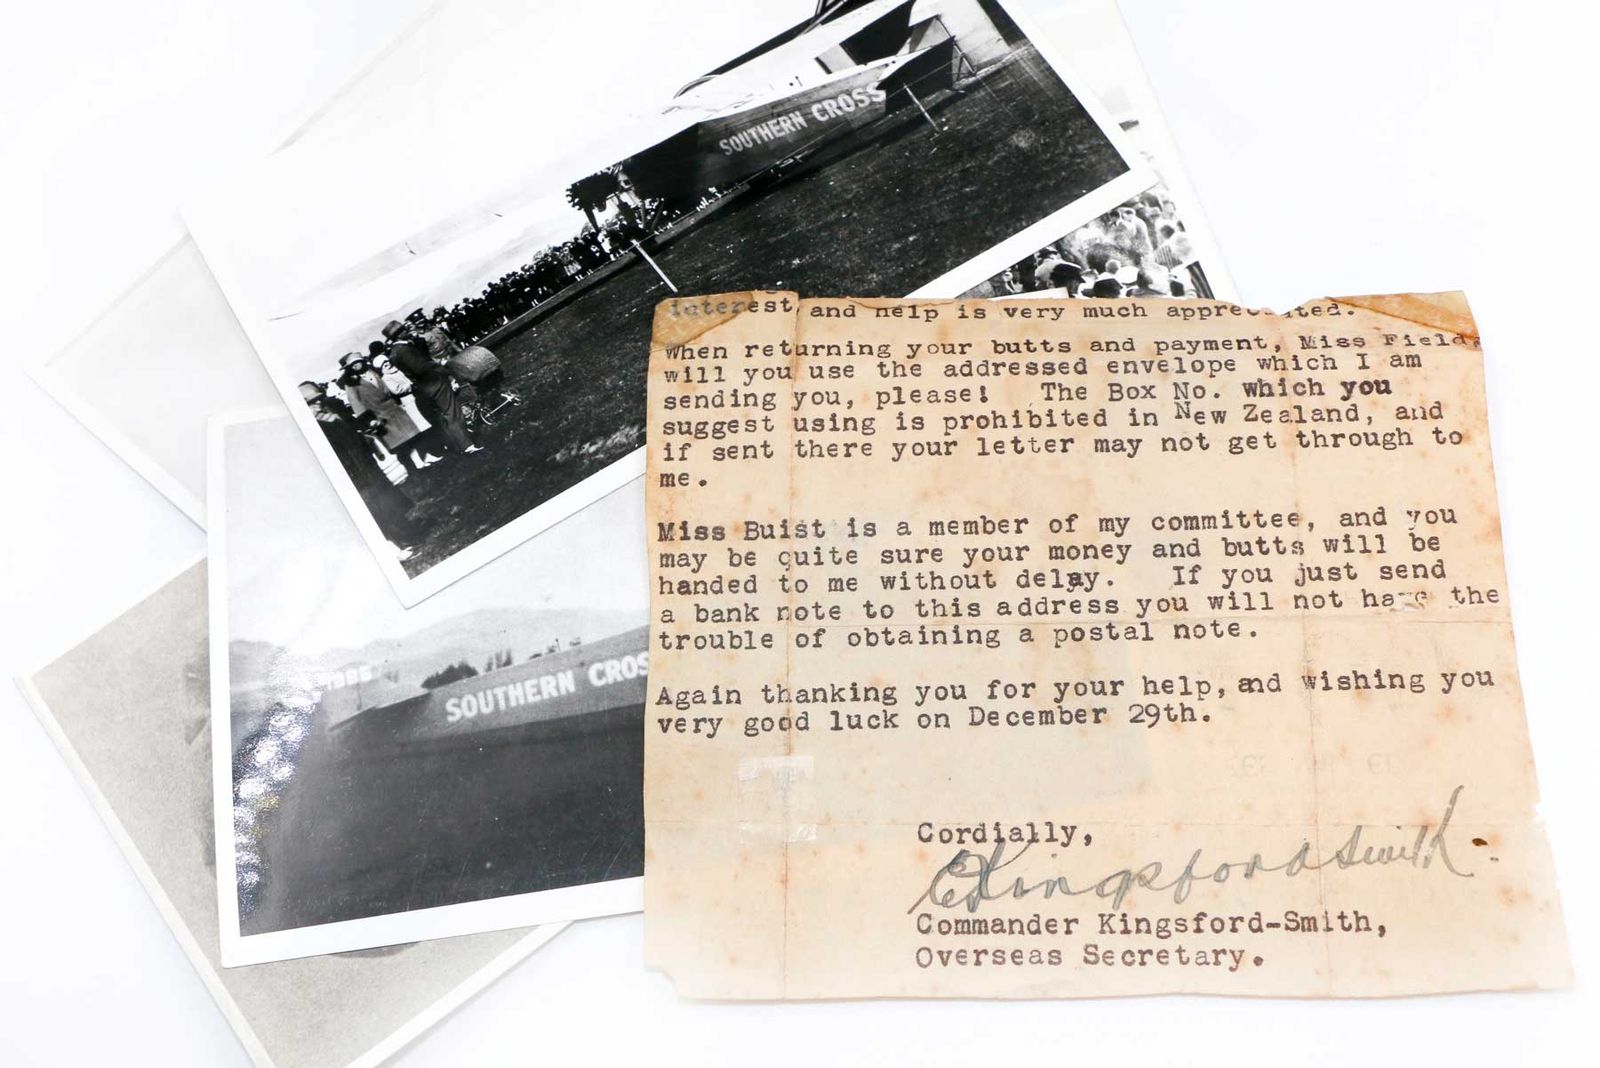 SOUTHERN CROSS
interest and help is very much appreciated.
When returning your butts and payment, Miss Field,
will you use the addressed envelope which I am
sending you, please! The Box No. which you
suggest using is prohibited in New Zealand, and
if sent there your letter may not get through to
me.
Miss Buist is a member of my committee, and you
may be quite sure your money and butts will be
handed to me without delay. If you just send
a bank note to this address you will not have the
trouble of obtaining a postal note.
Again thanking you for your help, and wishing you
very good luck on December 29th.
Cordially,
CKingsford Smith.
Commander Kingsford-Smith,
Overseas Secretary.
1985
SOUTHERN CROS